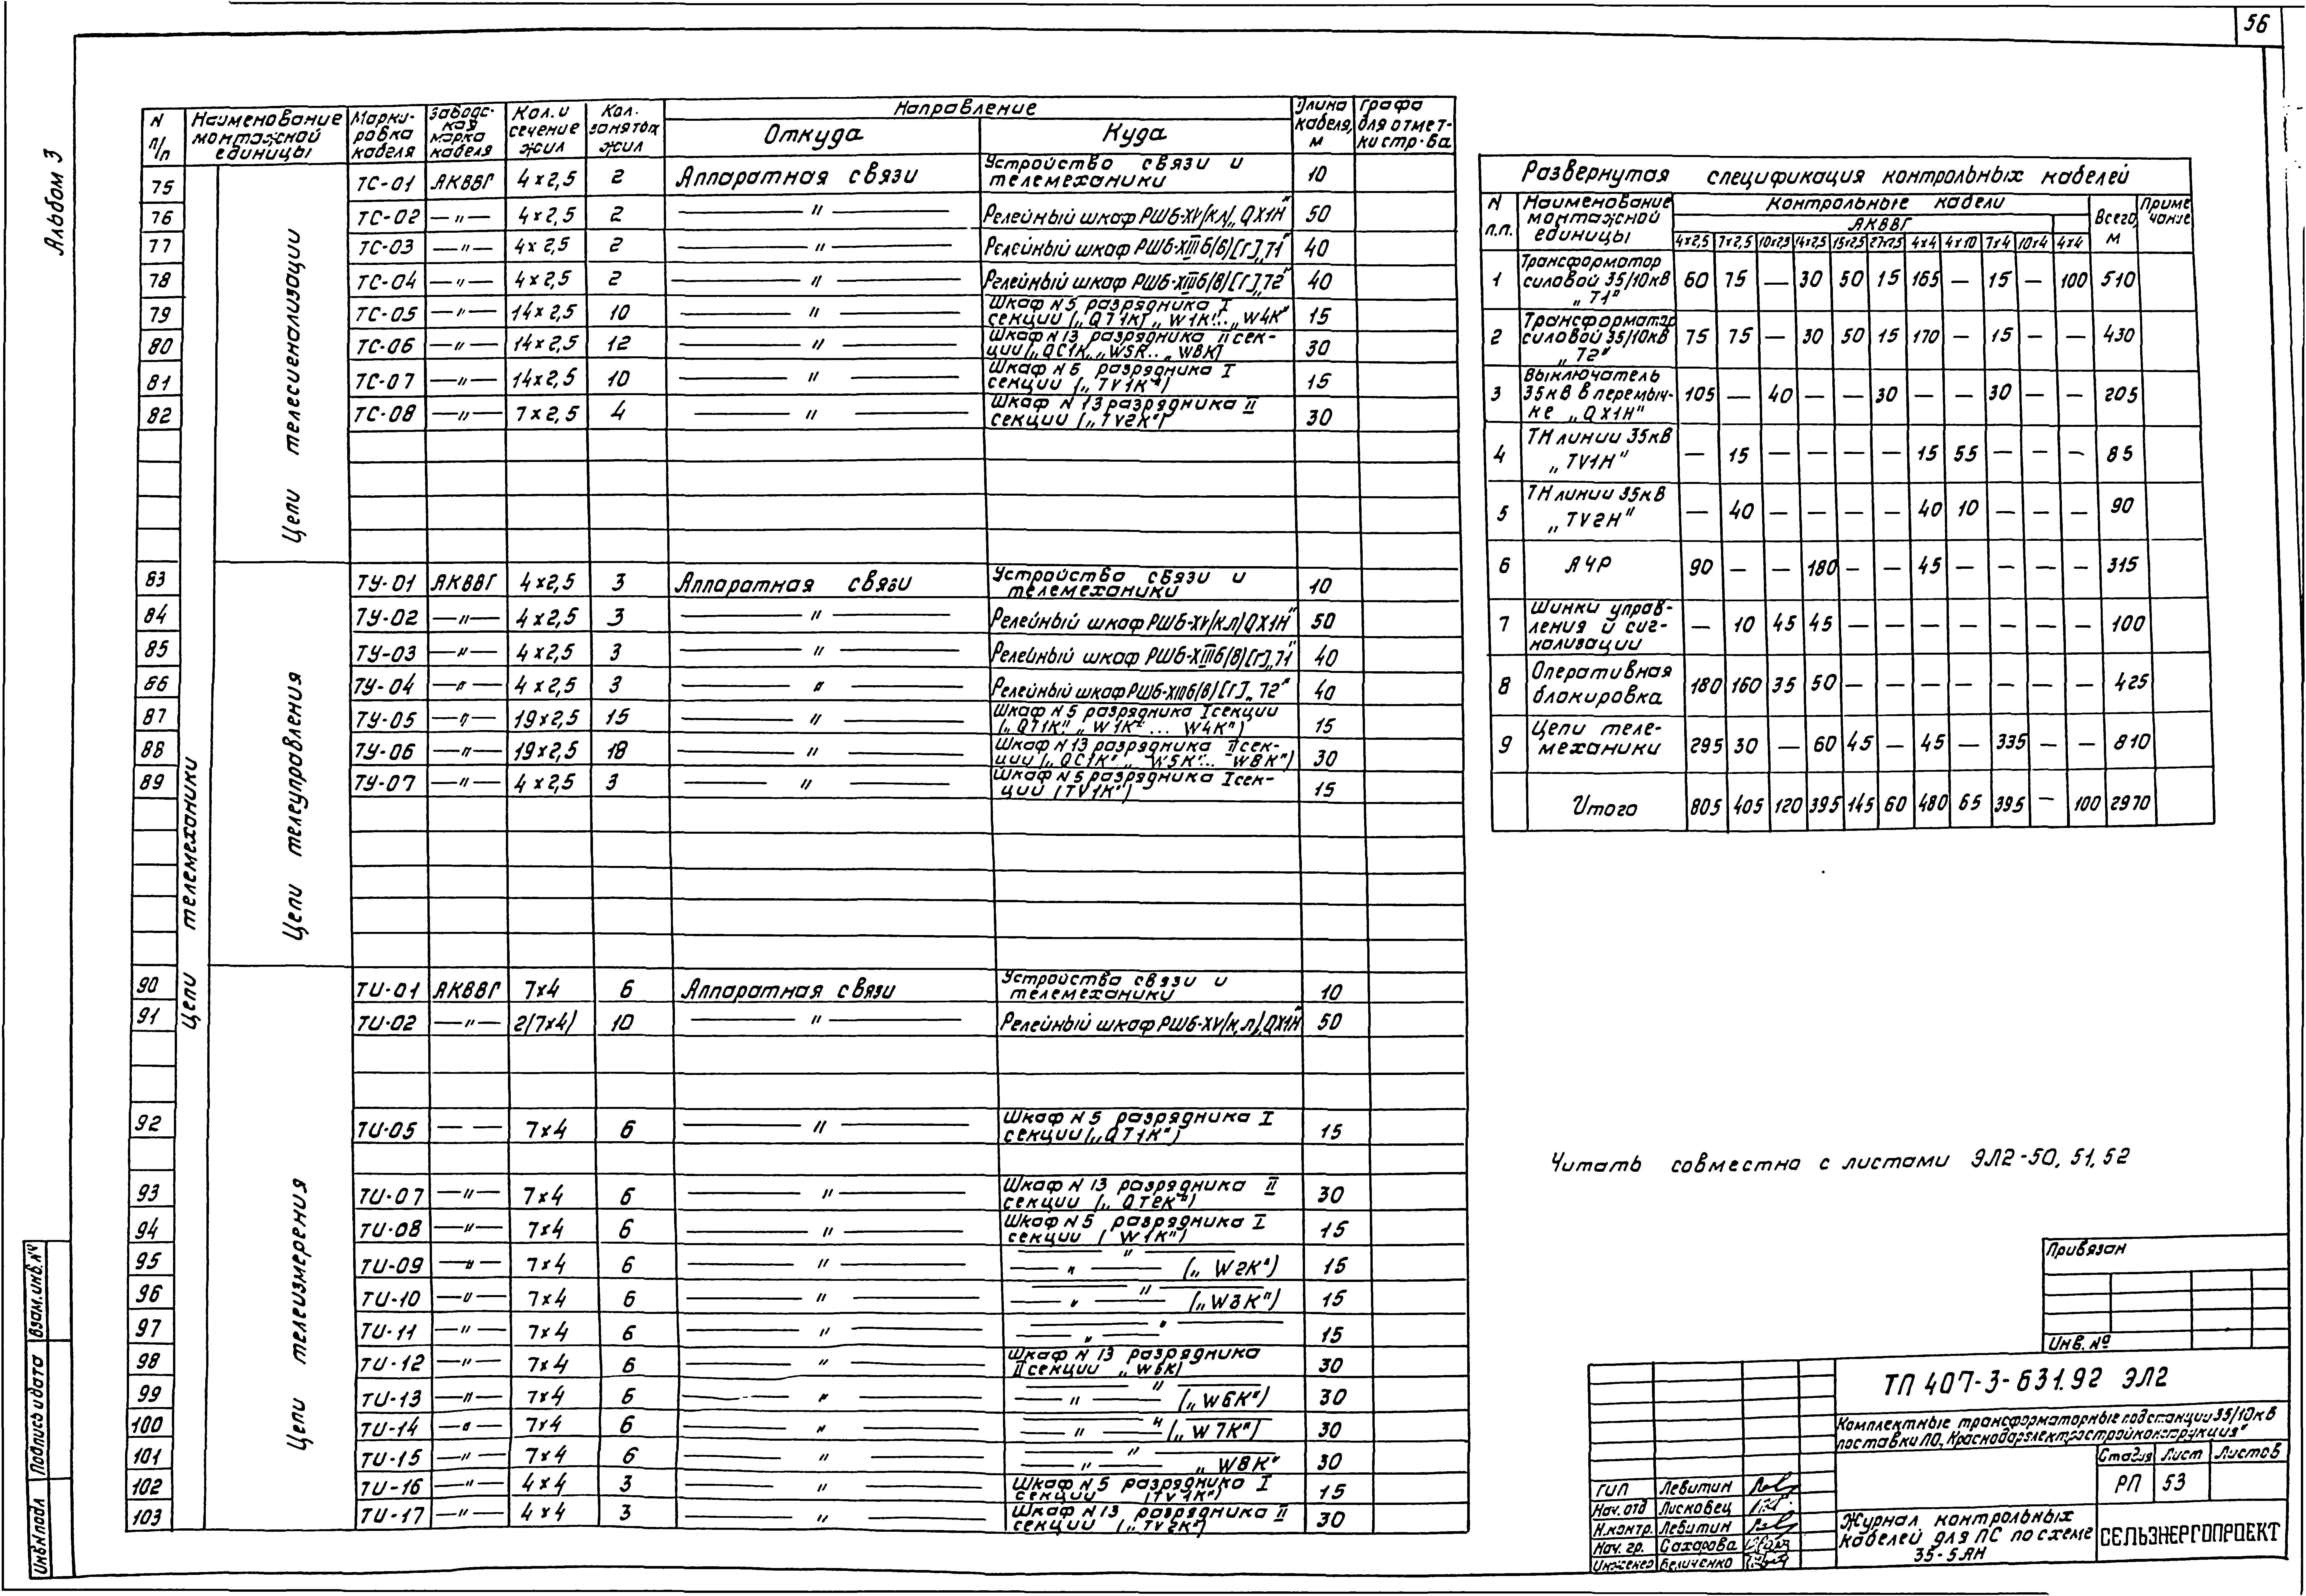 56
Альбом 3
N п/п | Наименование монтажной единицы | Марки-ровка кабеля | Заводс-кая марка кабеля | Кол. и сечение жил | Кол. занятых жил | Направление | Длина кабеля, м | Графа для отмет-ки стр-ва
Откуда | Куда
Цепи телемеханики
Цепи телесигнализации
75 | ТС-01 | АКВВГ | 4×2,5 | 2 | Аппаратная связи | Устройство связи и телемеханики | 10
76 | ТС-02 | —"— | 4×2,5 | 2 | —"— | Релейный шкаф РШБ-XV(к.л) „QX1H" | 50
77 | ТС-03 | —"— | 4×2,5 | 2 | —"— | Релейный шкаф РШБ-XIIIб(в)[г] „T1" | 40
78 | ТС-04 | —"— | 4×2,5 | 2 | —"— | Релейный шкаф РШБ-XIIIб(в)[г] „T2" | 40
79 | ТС-05 | —"— | 14×2,5 | 10 | —"— | Шкаф N5 разрядника I секции („QT1K", „W1K"... „W4K" | 15
80 | ТС-06 | —"— | 14×2,5 | 12 | —"— | Шкаф N13 разрядника II сек-ции („QC1K", „W5K... „W8K) | 30
81 | ТС-07 | —"— | 14×2,5 | 10 | —"— | Шкаф N5 разрядника I секции („TV1K") | 15
82 | ТС-08 | —"— | 7×2,5 | 4 | —"— | Шкаф N13 разрядника II секции („TV2K") | 30
Цепи телеуправления
83 | ТУ-01 | АКВВГ | 4×2,5 | 3 | Аппаратная связи | Устройство связи и телемеханики | 10
84 | ТУ-02 | —"— | 4×2,5 | 3 | —"— | Релейный шкаф РШБ-XV(к.л) QX1H" | 50
85 | ТУ-03 | —"— | 4×2,5 | 3 | —"— | Релейный шкаф РШБ-XIIIб(в)[г] „T1" | 40
86 | ТУ-04 | —"— | 4×2,5 | 3 | —"— | Релейный шкаф РШБ-XIIIб(в)[г] „T2" | 40
87 | ТУ-05 | —"— | 19×2,5 | 15 | —"— | Шкаф N5 разрядника I секции („QT1K", „W1K" ... W4K") | 15
88 | ТУ-06 | —"— | 19×2,5 | 18 | —"— | Шкаф N13 разрядника II сек-ции („QC1K" „W5K"... W8K") | 30
89 | ТУ-07 | —"— | 4×2,5 | 3 | —"— | Шкаф N5 разрядника I сек-ции (TV1K") | 15
Цепи телеизмерения
90 | ТИ-01 | АКВВГ | 7×4 | 6 | Аппаратная связи | Устройство связи и телемеханики | 10
91 | ТИ-02 | —"— | 2(7×4) | 10 | —"— | Релейный шкаф РШБ-XV(к.л) „QX1H" | 50
92 | ТИ-05 | — — | 7×4 | 6 | —"— | Шкаф N5 разрядника I секции („QT1K") | 15
93 | ТИ-07 | —"— | 7×4 | 6 | —"— | Шкаф N13 разрядника II секции („QT2K") | 30
94 | ТИ-08 | —"— | 7×4 | 6 | —"— | Шкаф N5 разрядника I секции ( W1K") | 15
95 | ТИ-09 | —"— | 7×4 | 6 | —"— | —"— —"— („W2K") | 15
96 | ТИ-10 | —"— | 7×4 | 6 | —"— | —"— —"— („W3K") | 15
97 | ТИ-11 | —"— | 7×4 | 6 | —"— | —"— —"— | 15
98 | ТИ-12 | —"— | 7×4 | 6 | —"— | Шкаф N13 разрядника II секции „W5K) | 30
99 | ТИ-13 | —"— | 7×4 | 6 | —"— | —"— —"— („W6K") | 30
100 | ТИ-14 | —"— | 7×4 | 6 | —"— | —"— —"— („W7K") | 30
101 | ТИ-15 | —"— | 7×4 | 6 | —"— | —"— —"— „W8K" | 30
102 | ТИ-16 | —"— | 4×4 | 3 | —"— | Шкаф N5 разрядника I секции (TV1K") | 15
103 | ТИ-17 | —"— | 4×4 | 3 | —"— | Шкаф N13 разрядника II секции („TV2K") | 30
Развернутая спецификация контрольных кабелей
N п.п. | Наименование монтажной единицы | Контрольные кабели | Всего, м | Приме чание
АКВВГ
4×2,5 | 7×2,5 | 10×2,5 | 14×2,5 | 19×2,5 | 27×2,5 | 4×4 | 4×10 | 7×4 | 10×4 | 4×4
1 | Трансформатор силовой 35/10кВ „T1" | 60 | 75 | — | 30 | 50 | 15 | 165 | — | 15 | — | 100 | 510
2 | Трансформатор силовой 35/10кВ „T2" | 75 | 75 | — | 30 | 50 | 15 | 170 | — | 15 | — | — | 430
3 | Выключатель 35кВ в перемыч-ке „QX1H" | 105 | — | 40 | — | — | 30 | — | — | 30 | — | — | 205
4 | ТН линии 35кВ „TV1H" | — | 15 | — | — | — | — | 15 | 55 | — | — | — | 85
5 | ТН линии 35кВ „TV2H" | — | 40 | — | — | — | — | 40 | 10 | — | — | — | 90
6 | АЧР | 90 | — | — | 180 | — | — | 45 | — | — | — | — | 315
7 | Шинки управ-ления и сиг-нализации | — | 10 | 45 | 45 | — | — | — | — | — | — | — | 100
8 | Оперативная блокировка | 180 | 160 | 35 | 50 | — | — | — | — | — | — | — | 425
9 | Цепи теле-механики | 295 | 30 | — | 60 | 45 | — | 45 | — | 335 | — | — | 810
Итого | 805 | 405 | 120 | 395 | 145 | 60 | 480 | 65 | 395 | — | 100 | 2970
Читать совместно с листами ЭЛ2-50, 51, 52
Привязан
Инв. №
ТП 407-3-631.92 ЭЛ2
Комплектные трансформаторные подстанции 35/10кВ
поставки ПО „Краснодарэлектростройконструкция"
Стадия | Лист | Листов
РП | 53
ГИП Левитин
Нач. отд Лисковец
Н.контр. Левитин
Нач. гр. Сахарова
Инженер Беличенко
Журнал контрольных
кабелей для ПС по схеме
35-5АН
СЕЛЬЭНЕРГОПРОЕКТ
Взам. инв. №
Подпись и дата
Инв.№ подл